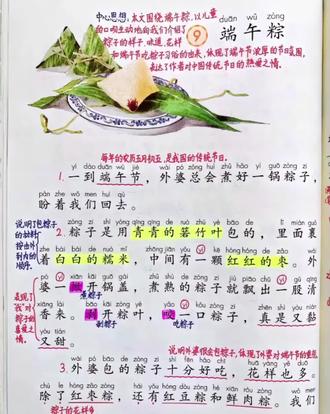 中心思想：本文围绕端午粽，以儿童
的口吻生动地向我们介绍了
粽子的样子、味道、花样
和端午节吃粽子习俗的由来，体现了端午节浓厚的节日氛围，
表达了作者对中国传统节日的热爱之情。
duān wǔ zòng
9 端午粽
每年的农历五月初五，是我国的传统节日。
yí dào duān wǔ jié wài pó zǒng huì zhǔ hǎo yì guō zòng zi
1.一到端午节，外婆总会煮好一锅粽子，
pàn zhe wǒ men huí qù
盼着我们回去。
说明了包粽子的材料，按由外到内的顺序。
zòng zi shì yòng qīng qīng de ruò zhú yè bāo de lǐ miàn guǒ
2.粽子是用青青的箬竹叶包的，里面裹
zhe bái bái de nuò mǐ zhōng jiān yǒu yì kē hóng hóng de zǎo wài
着白白的糯米，中间有一颗红红的枣。外
pó yì xiān kāi guō gài zhǔ shú de zòng zi jiù piāo chū yì gǔ qīng
婆一掀开锅盖，煮熟的粽子就飘出一股清
煮粽子
表现了我对粽子的喜爱之情。
xiāng lái bāo kāi zòng yè yǎo yì kǒu zòng zi zhēn shì yòu nián
香来。剥开粽叶，咬一口粽子，真是又黏
剥粽子 吃粽子
yòu tián
又甜。
说明外婆很会包粽子，体现了外婆对端午节的重视。
wài pó bāo de zòng zi shí fēn hǎo chī huā yàng yě duō
3.外婆包的粽子十分好吃，花样也多。
chú le hóng zǎo zòng hái yǒu hóng dòu zòng hé xiān ròu zòng wǒ men
除了红枣粽，还有红豆粽和鲜肉粽。我们
粽子的花样多